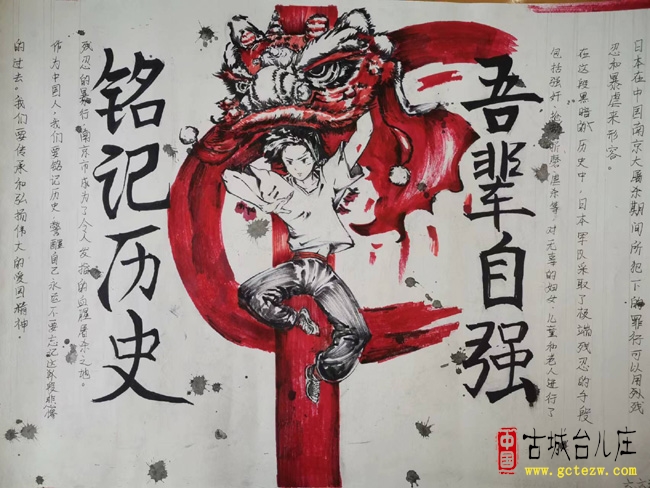 日本在中国南京大屠杀期间所犯下的罪行可以用残
忍和暴虐来形容。
在这段黑暗的历史中,日本军民采取了极端残忍的手段
对无辜的妇女儿童和老人进行了
吾辈自强
铭记历史
残忍的暴行,南京市成为了令人发指的血腥屠杀之地。
作为中国人,我们要铭记历史,警醒自己永远不要忘记这段悲惨
的过去。我们要传承和弘扬伟大的爱国精神。
中国
古城台儿庄
www.gctezw.com